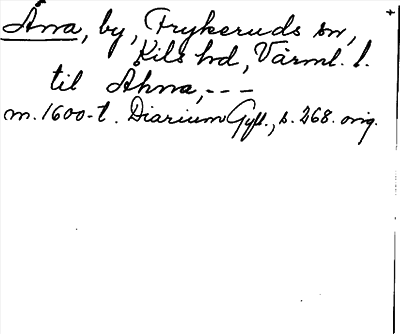 Åna, by, Frykeruds sn,
Kils hd, Värml. l.
til Ahna, ---
m. 1600-t. Diarium Gyll., s. 268. orig.